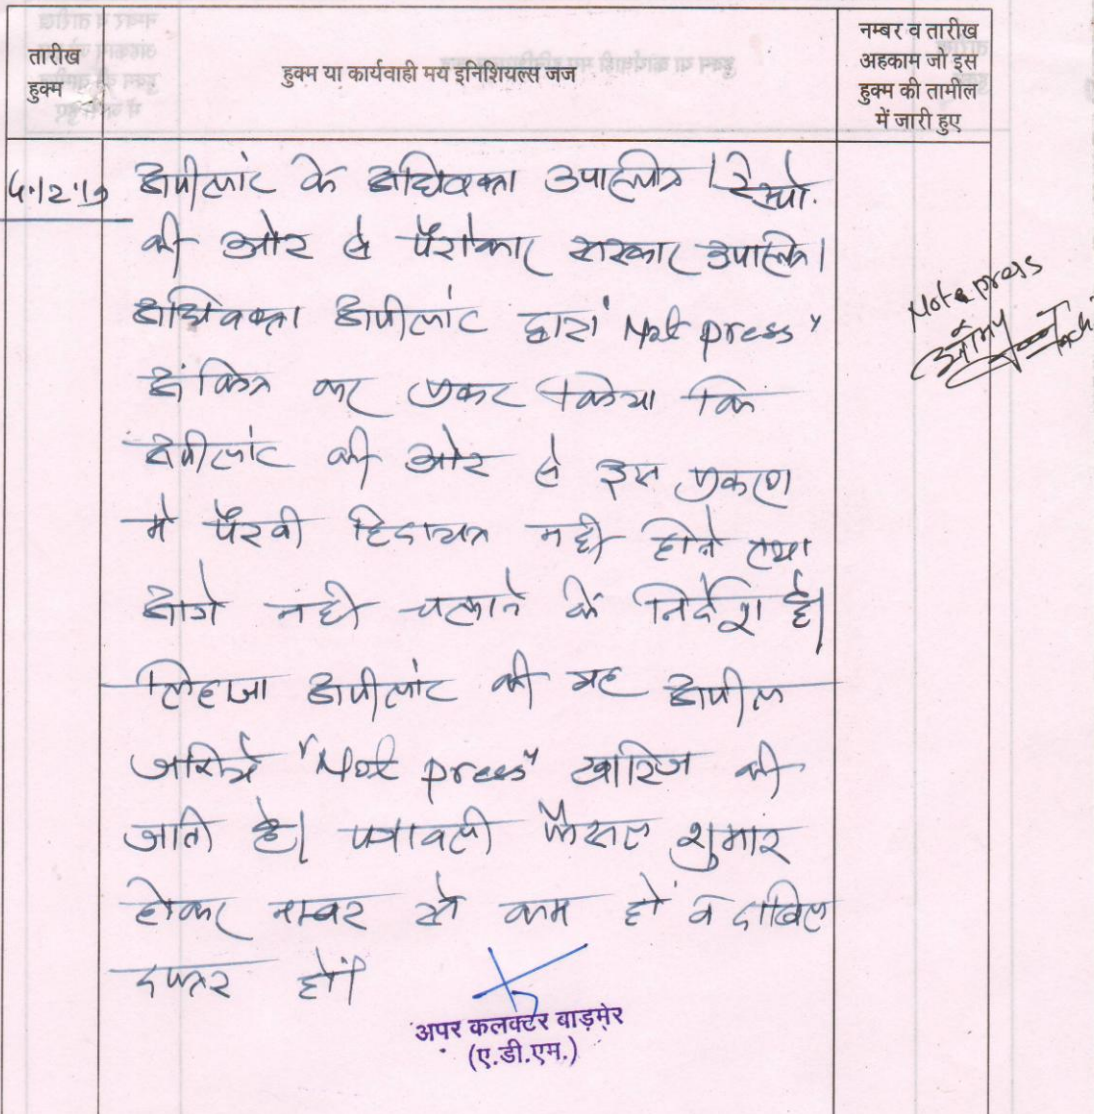 तारीख
हुक्म
हुक्म या कार्यवाही मय इनिशियल्स जज
नम्बर व तारीख
अहकाम जो इस
हुक्म की तामील
में जारी हुए
अपीलांट के अधिवक्ता उपस्थित। रेस्पो.
की ओर से पैरोकार सरकार उपस्थित।
अधिवक्ता अपीलांट द्वारा "Not press"
अंकित कर प्रकट किया कि
अपीलांट की ओर से इस प्रकरण
मे पैरवी हिदायत नही होने तथा
आगे नही चलाने के निर्देश है।
लिहाजा अपीलांट की यह अपील
जरिये "Not press" खारिज की
जाती है। पत्रावली फैसल शुमार
होकर नम्बर से कम हो व दाखिल
दफ्तर हो।
Not press
अपर कलक्टर बाड़मेर
(ए.डी.एम.)